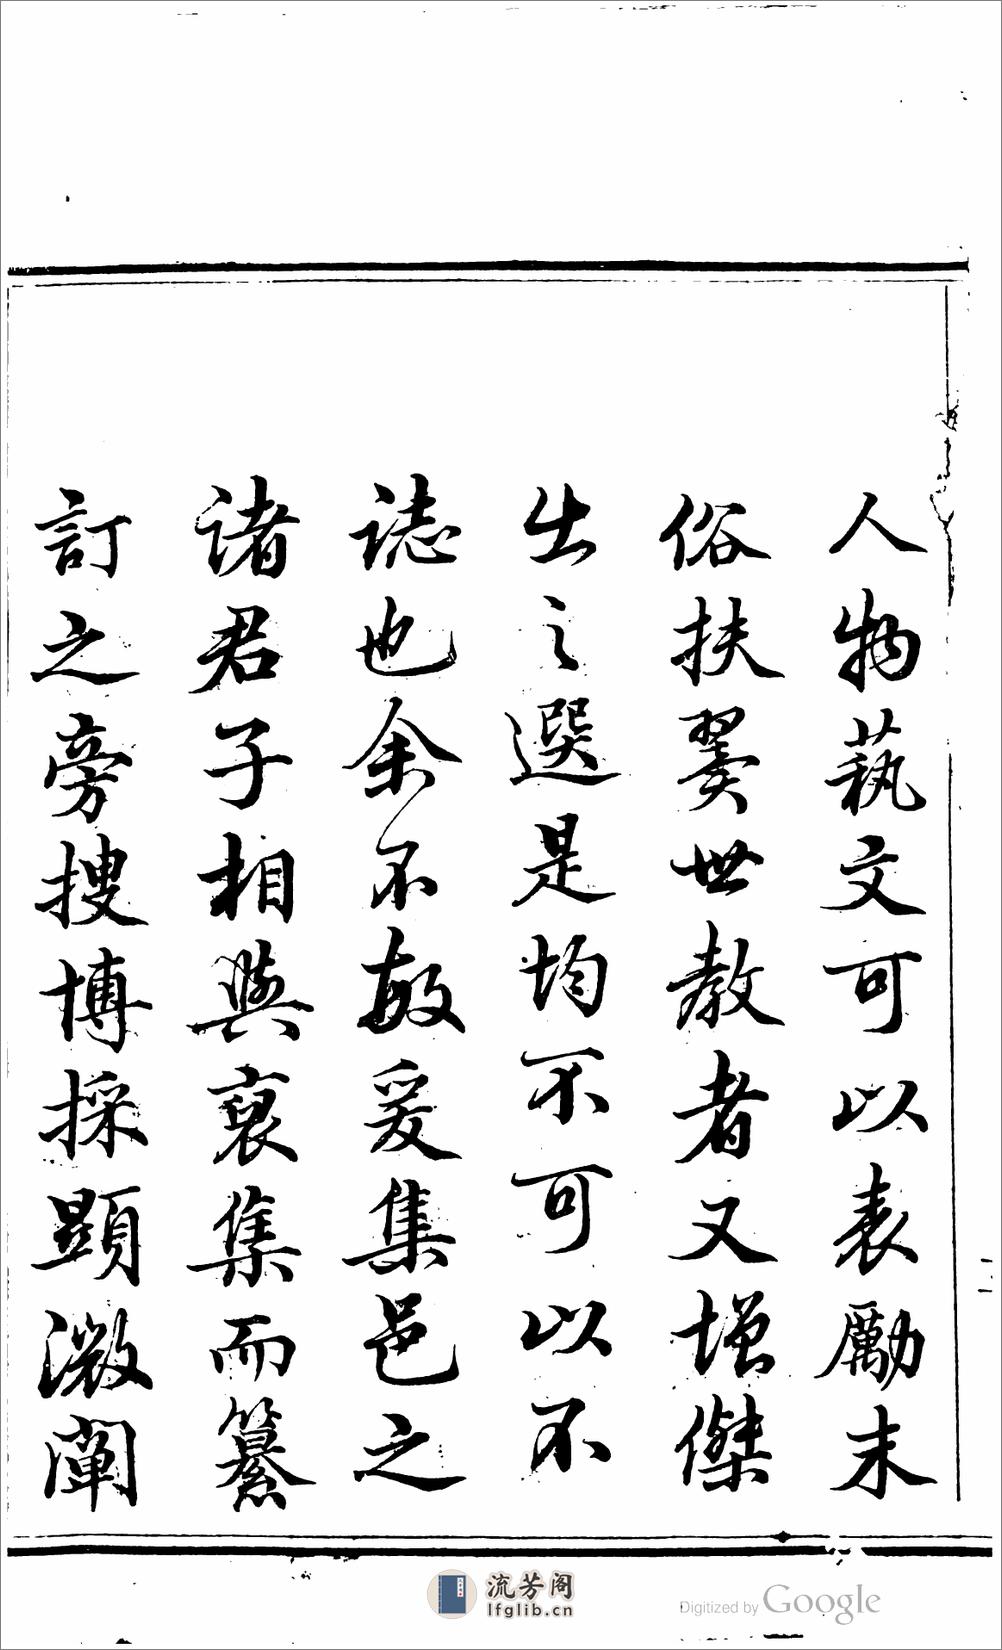 人物藝文可以表勵末
俗扶翼世教者又增傑
出之選是均不可以不
誌也余不敏爰集邑之
諸君子相與裒集而纂
訂之旁搜博採顯微闡
流芳阁
lfglib.cn
Digitized by Google